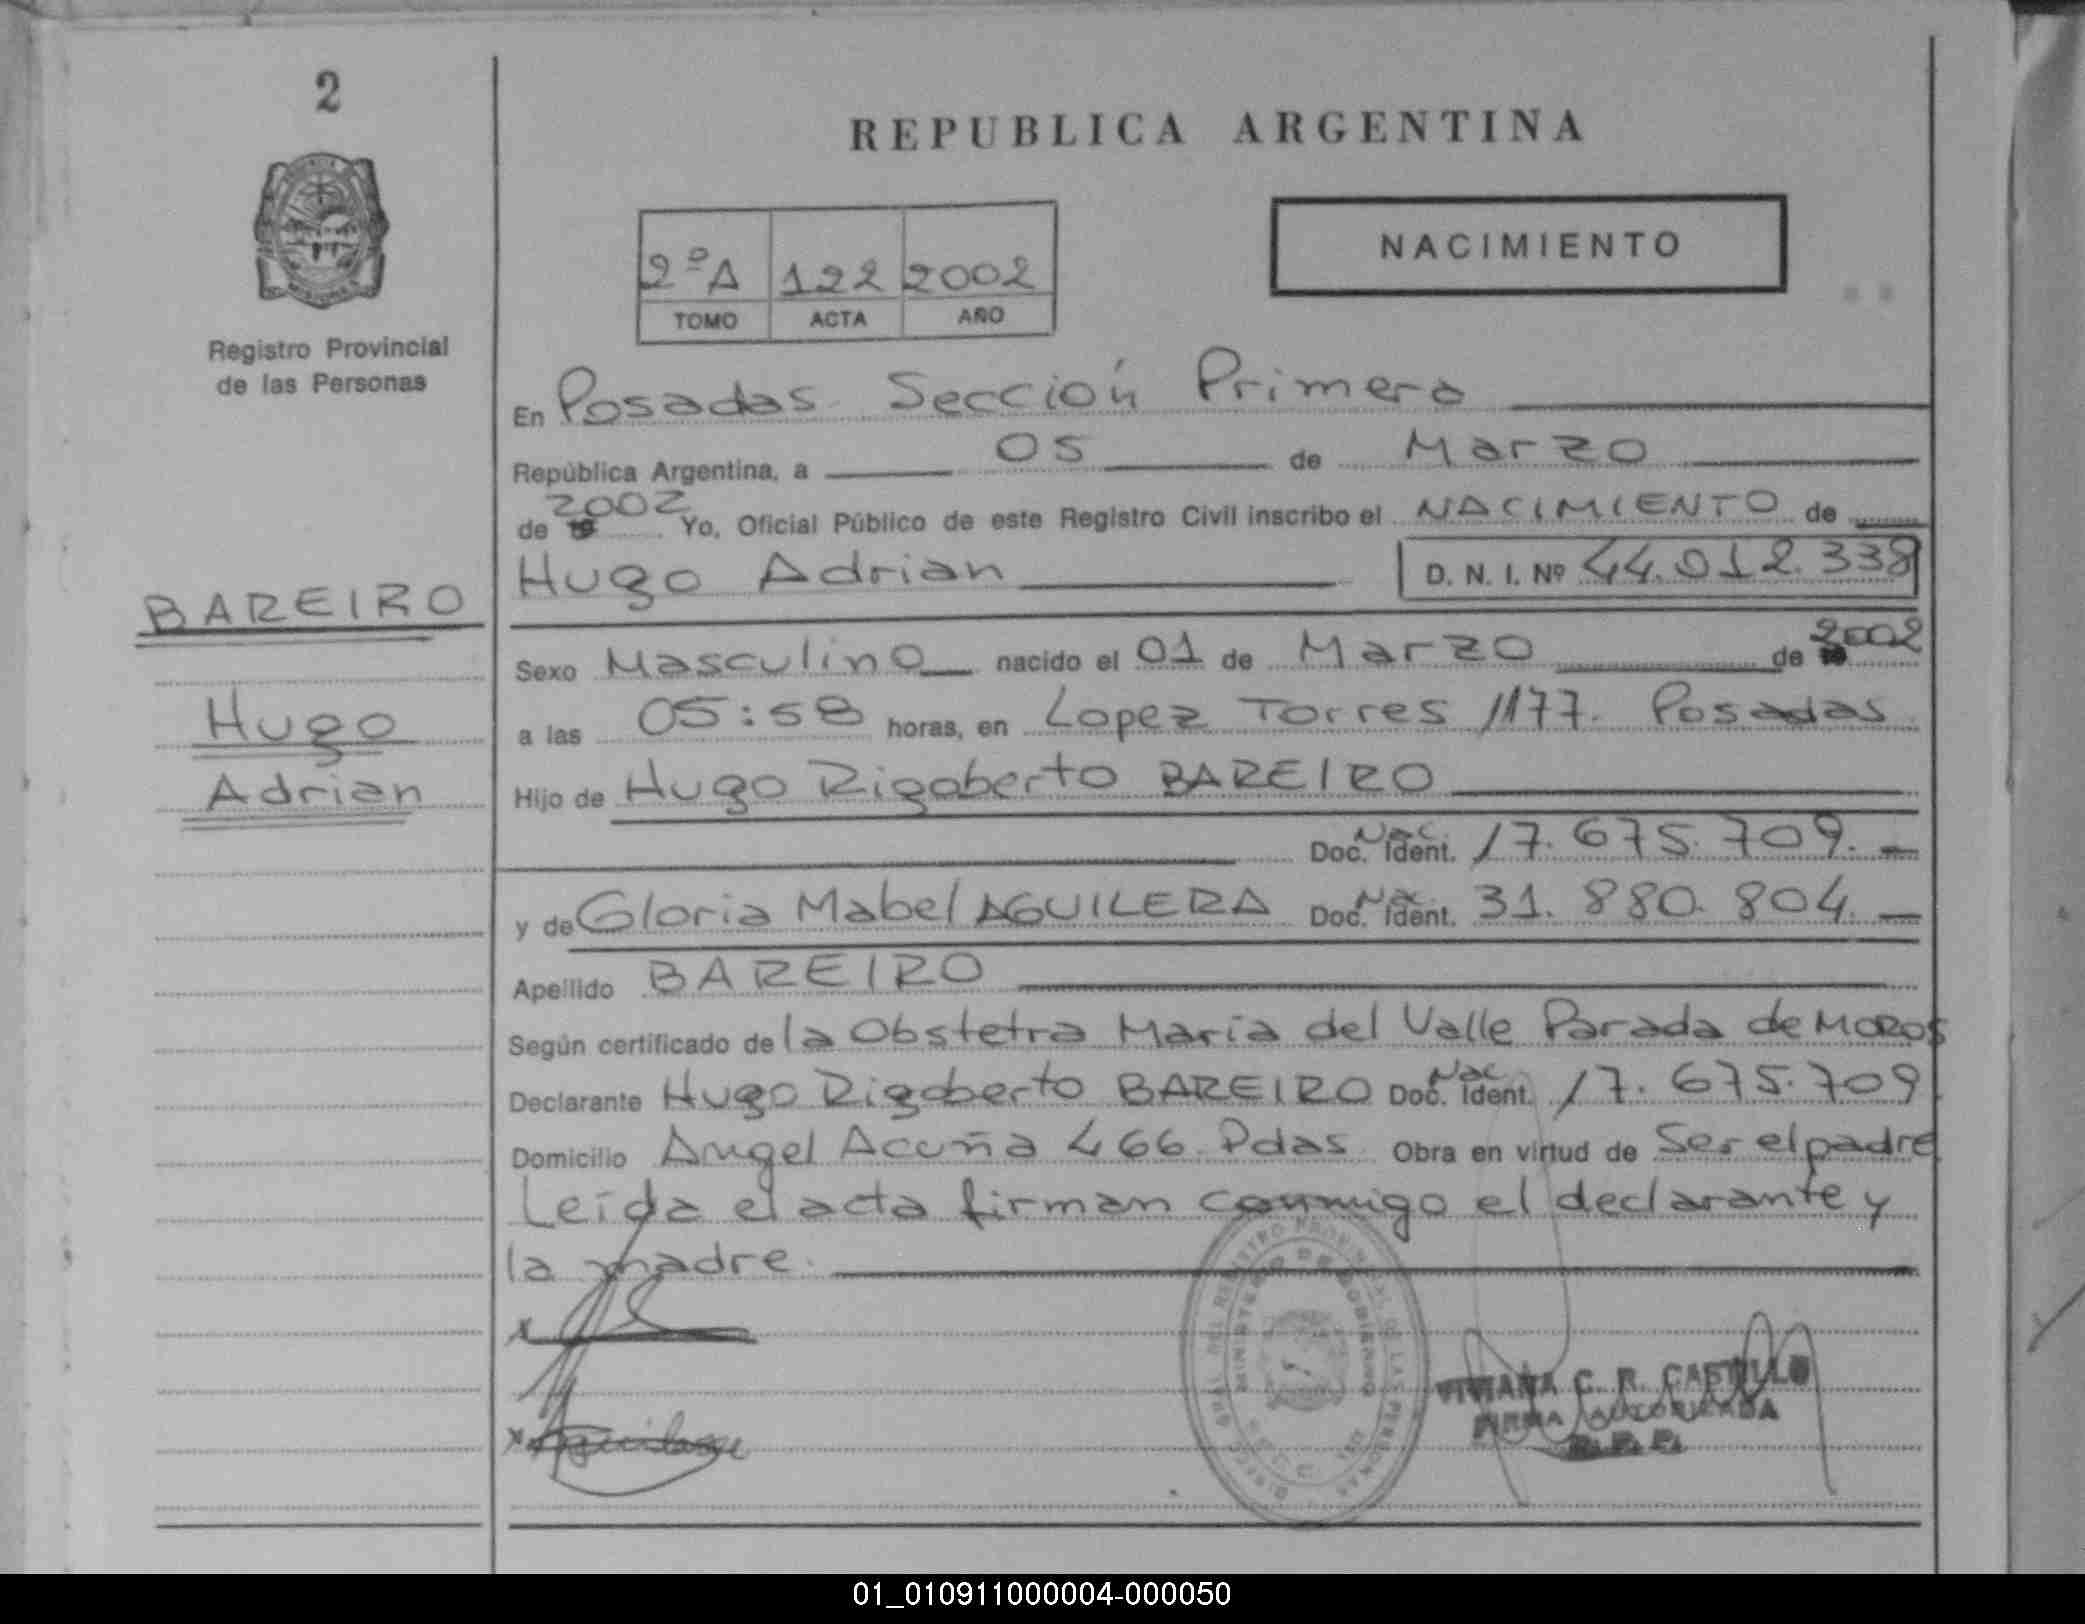 2
REPUBLICA ARGENTINA
NACIMIENTO
2º A 122 2002
TOMO ACTA AÑO
Registro Provincial
de las Personas
En Posadas Sección Primera
República Argentina, a 05 de Marzo
de 2002 Yo, Oficial Público de este Registro Civil inscribo el NACIMIENTO de
Hugo Adrian D. N. I. Nº 44.012.338
BAREIRO
Hugo
Adrian
Sexo Masculino nacido el 01 de Marzo de 2002
a las 05:58 horas, en Lopez Torres 1177. Posadas
Hijo de Hugo Rigoberto BAREIRO
Doc. Nac. Ident. 17.675.709.
y de Gloria Mabel AGUILERA Doc. Nac. Ident. 31.880.804.
Apellido BAREIRO
Según certificado de la Obstetra María del Valle Parada de MOROS
Declarante Hugo Rigoberto BAREIRO Doc. Nac. Ident. 17.675.709
Domicilio Angel Acuña 466 Pdas Obra en virtud de Ser el padre
Leída el acta firman conmigo el declarante y
la madre.
DEL REGISTRO PROVINCIAL DE LAS PERSONAS
MINISTERIO DE GOBIERNO
VIVIANA C. R. CASTILLO
FIRMA AUTORIZADA
01_010911000004-000050